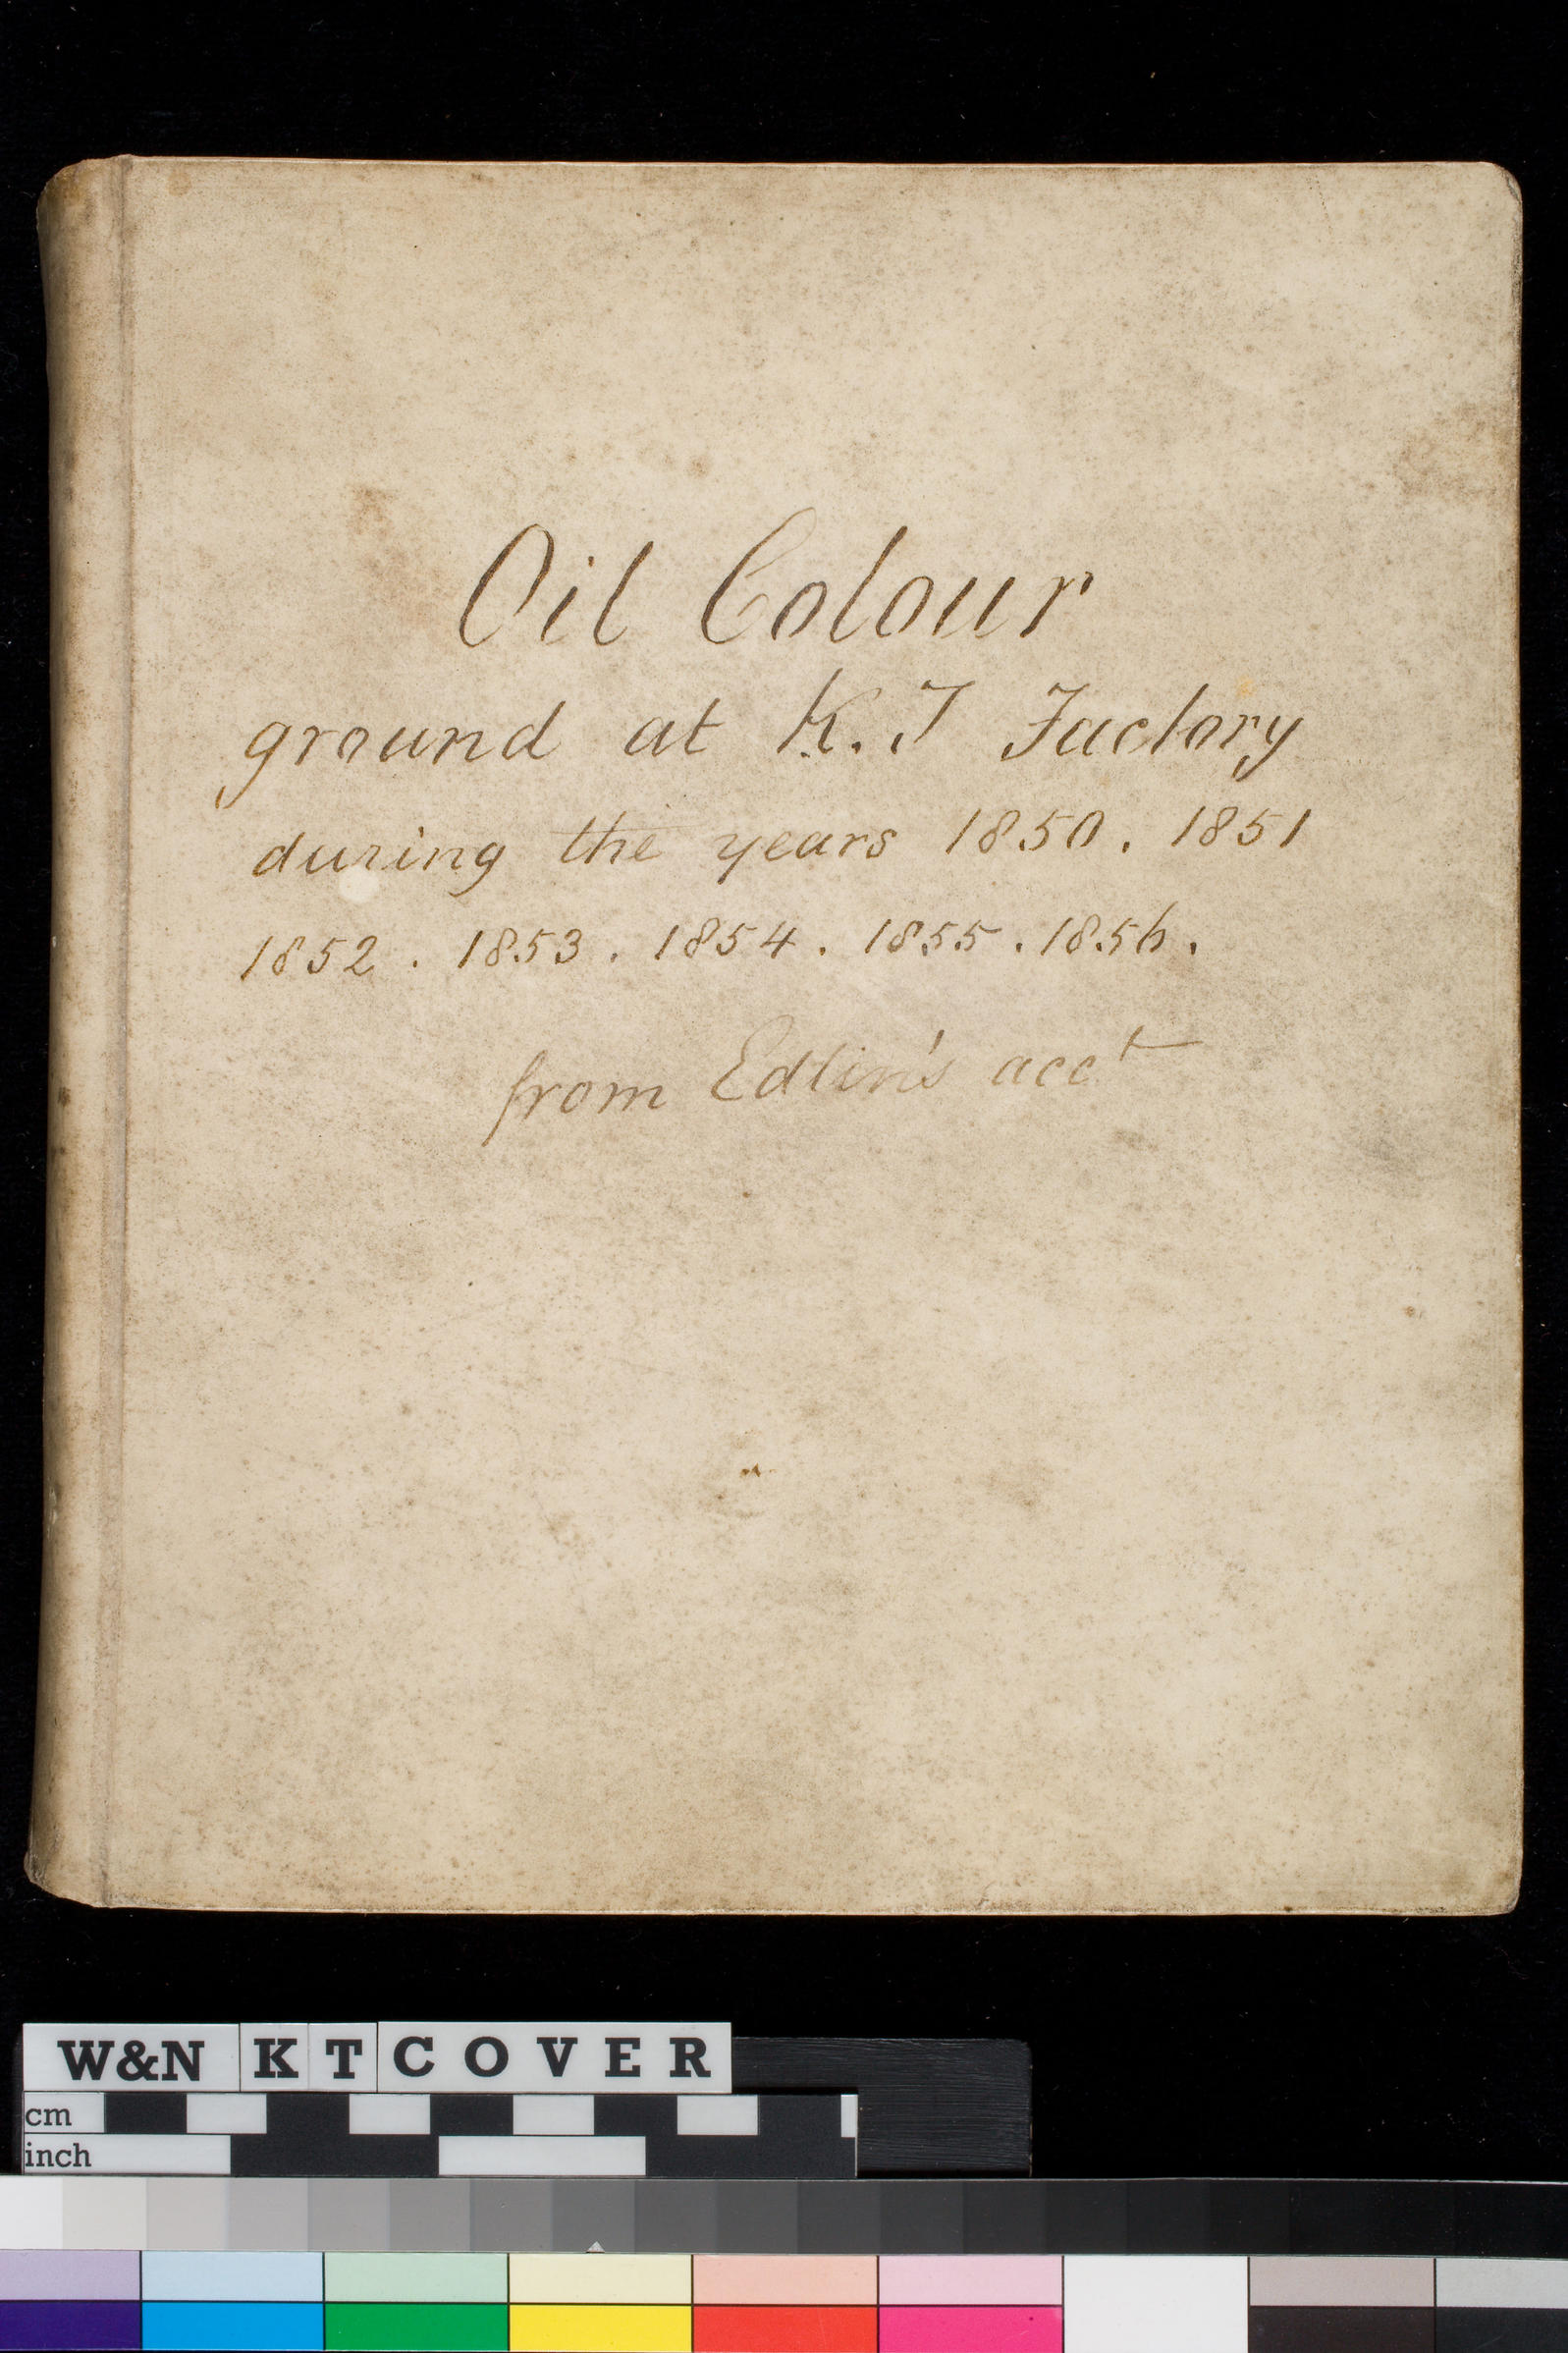 Oil Colour
ground at K.T Factory
during the years 1850. 1851
1852. 1853. 1854. 1855. 1856.
from Edlin's acct
W&N KT COVER
cm
inch